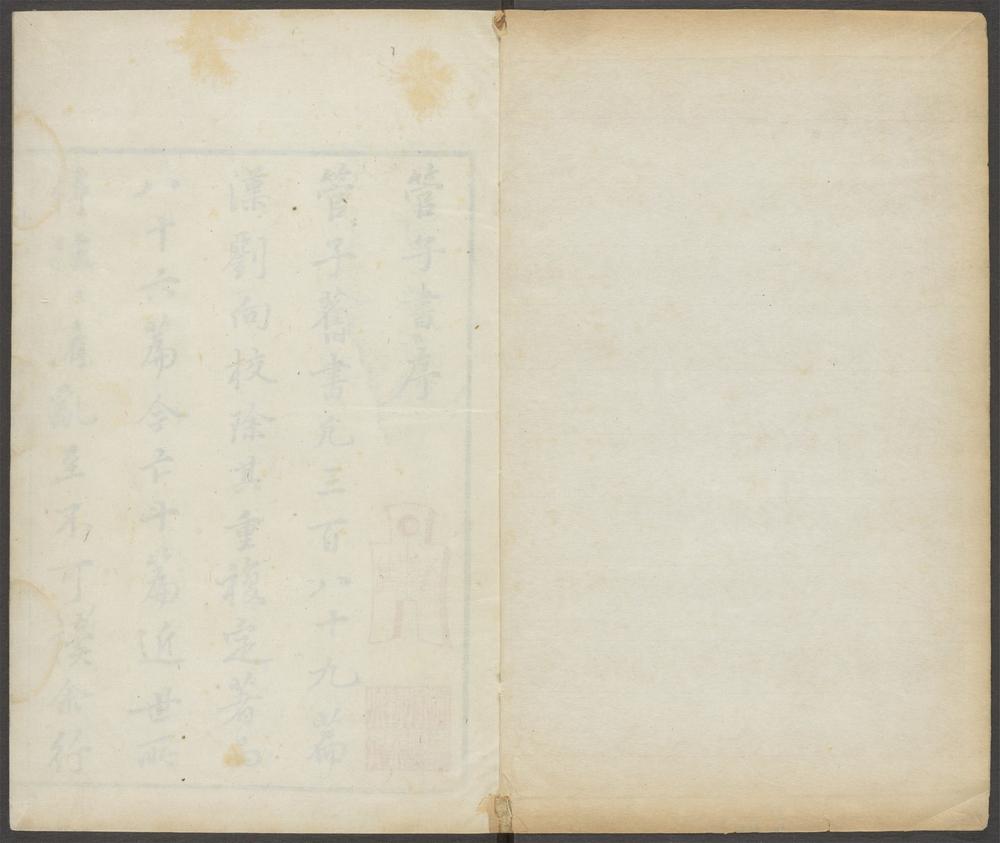 管子書序
管子舊書凡三百八十九篇
漢劉向校除其重複定著為
八十六篇今亡十篇近世所
傳往往淆亂至不可讀余行